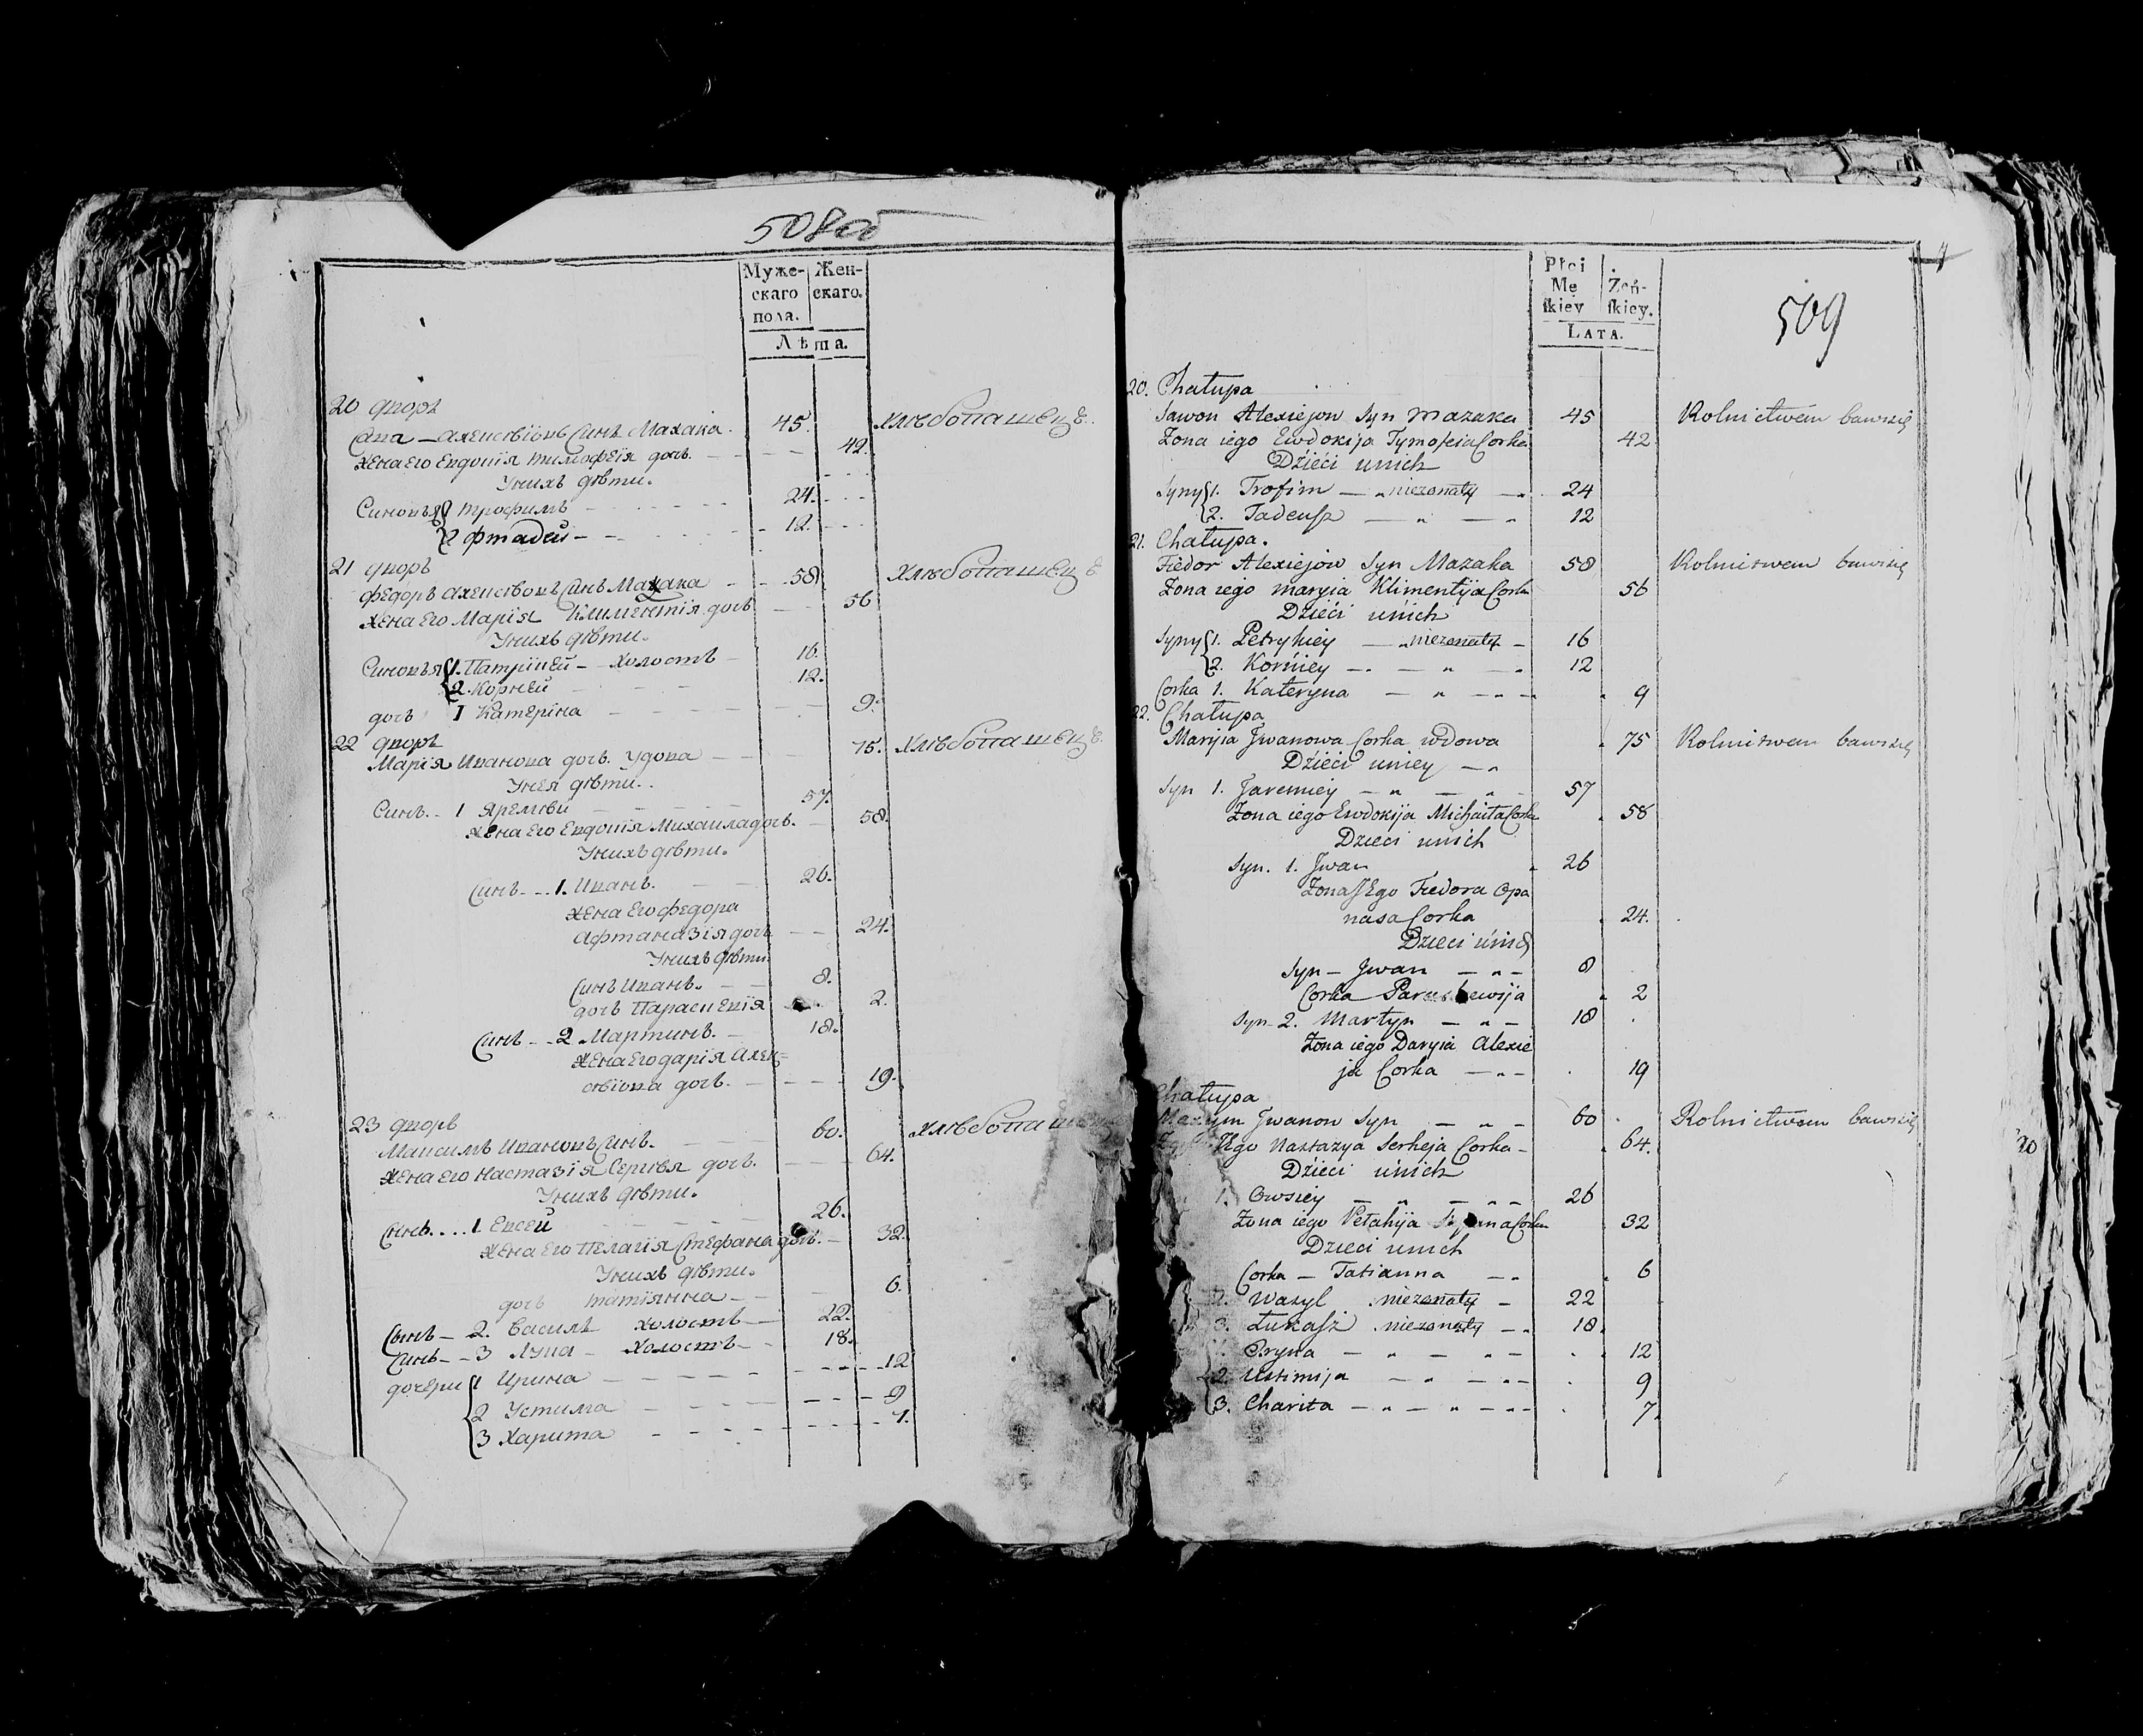 508об
Муже-
скаго
пола.
Жен-
скаго.
Лѣта.
20 дворъ
Сава Алексѣйовъ Синъ Мазака. 45. Хлѣбопашецъ.
жена Его Евдокія тимофѣія дочъ. 42.
Унихъ дѣти.
Синовья 1 трофимъ 24.
2 фтадей 12.
21 дворъ
федоръ алексѣевъ Синъ Мазака 58 Хлѣбопашецъ
жена Его Марія Климентія дочъ 56
Унихъ дѣти.
Синовья 1. Патрікей Холостъ 16.
2. Корнѣй 12.
дочъ 1 Катеріна 9.
22 дворъ
Марія Иванова дочъ. Удова 75. Хлѣбопашецъ
Унея дѣти.
Синъ. 1 Яремѣй 57.
жена Его Евдокія Михаила дочъ. 58.
Унихъ дѣти.
Синъ 1. Иванъ. 26.
жена Его федора
афтаназія дочъ 24.
Унихъ дѣти
Синъ Иванъ. 8.
дочъ Параскевія 2.
Синъ 2. Мартинъ. 18.
жена Его дарія Алек-
сѣівна дочъ. 19.
23 дворъ
Максимъ Ивановъ Синъ. 60. Хлѣбопашец
жена Его настазія Сергѣя дочъ. 64.
Унихъ дѣти.
Синъ.... 1. Евсей 26.
жена Его Пелагія Стефана дочъ. 32.
Унихъ дѣти.
дочъ татіянна 6.
Синъ 2. Василь холостъ 22.
Синъ 3 Лука Холостъ 18.
дочери 1 Ирина 12
2 Устима 9
3 Харита 7.
Płci
Mę
ſkiey
Żeń-
ſkiey.
LATA.
4
509
20. Chałupa
Sawon Alexiejow Syn Mazaka 45 Rolnictwem bawisię
Zona iego Ewdokija Tymofeia Corka 42
Dzieci unich
Syny 1. Trofim niezonaty 24
2. Tadeuſz " " 12
21. Chałupa.
Fiedor Alexiejow Syn Mazaka 58 Rolnictwem bawisię
Zona iego maryia Klimentija Corka 56
Dzieci unich
Syny 1. Petrykiey niezonaty 16
2. Korniey " " 12
Corka 1. Kateryna " 9
22. Chałupa
Maryia Jwanowa Corka wdowa 75 Rolnictwem bawisię
Dzieci uniey "
Syn 1. Jaremiey " " 57
Zona iego Ewdokija Michaiła Corka 58
Dzieci unich
Syn. 1. Jwan 26
Zona Jego Fiedora Opa
nasa Corka 24.
Dzieci unich
Syn – Jwan " 8
Corka Paraskewija 2
Syn 2. Martyn " 18
Zona iego Daryia Alexie
ja Corka " 19
Chałupa
Maxym Jwanow Syn " 60 Rolnictwem bawisię
Jego Nastazya Serheja Corka 64.
Dzieci unich
1. Owsiey " " 26
Zona iego Pełahija Corka 32
Dzieci unich
Corka – Tatianna 6
2. Wasyl niezonaty 22
3. Łukaſz niezonaty 18
Oryna " " 12
2. Ustimija " " 9
3. Charita " " " 7.